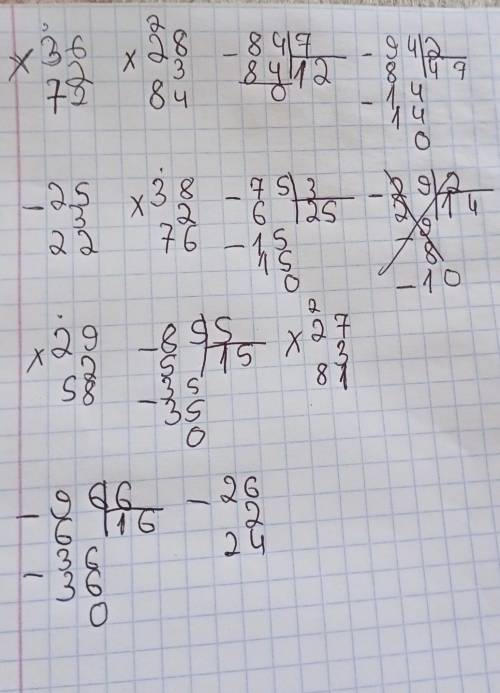 3
× 36
2
72
2
× 28
3
84
− 84 | 7
84 | 12
0
− 94 | 2
8 | 47
− 14
14
0
− 25
3
22
× 38
2
76
− 75 | 3
6 | 25
− 15
15
0
− 29 | 2
2 | 14
− 9
8
− 10
× 29
2
58
− 8 5 | 5
5 | 15
− 35
35
0
2
× 27
3
81
− 96 | 6
6 | 16
− 36
36
0
− 26
2
24